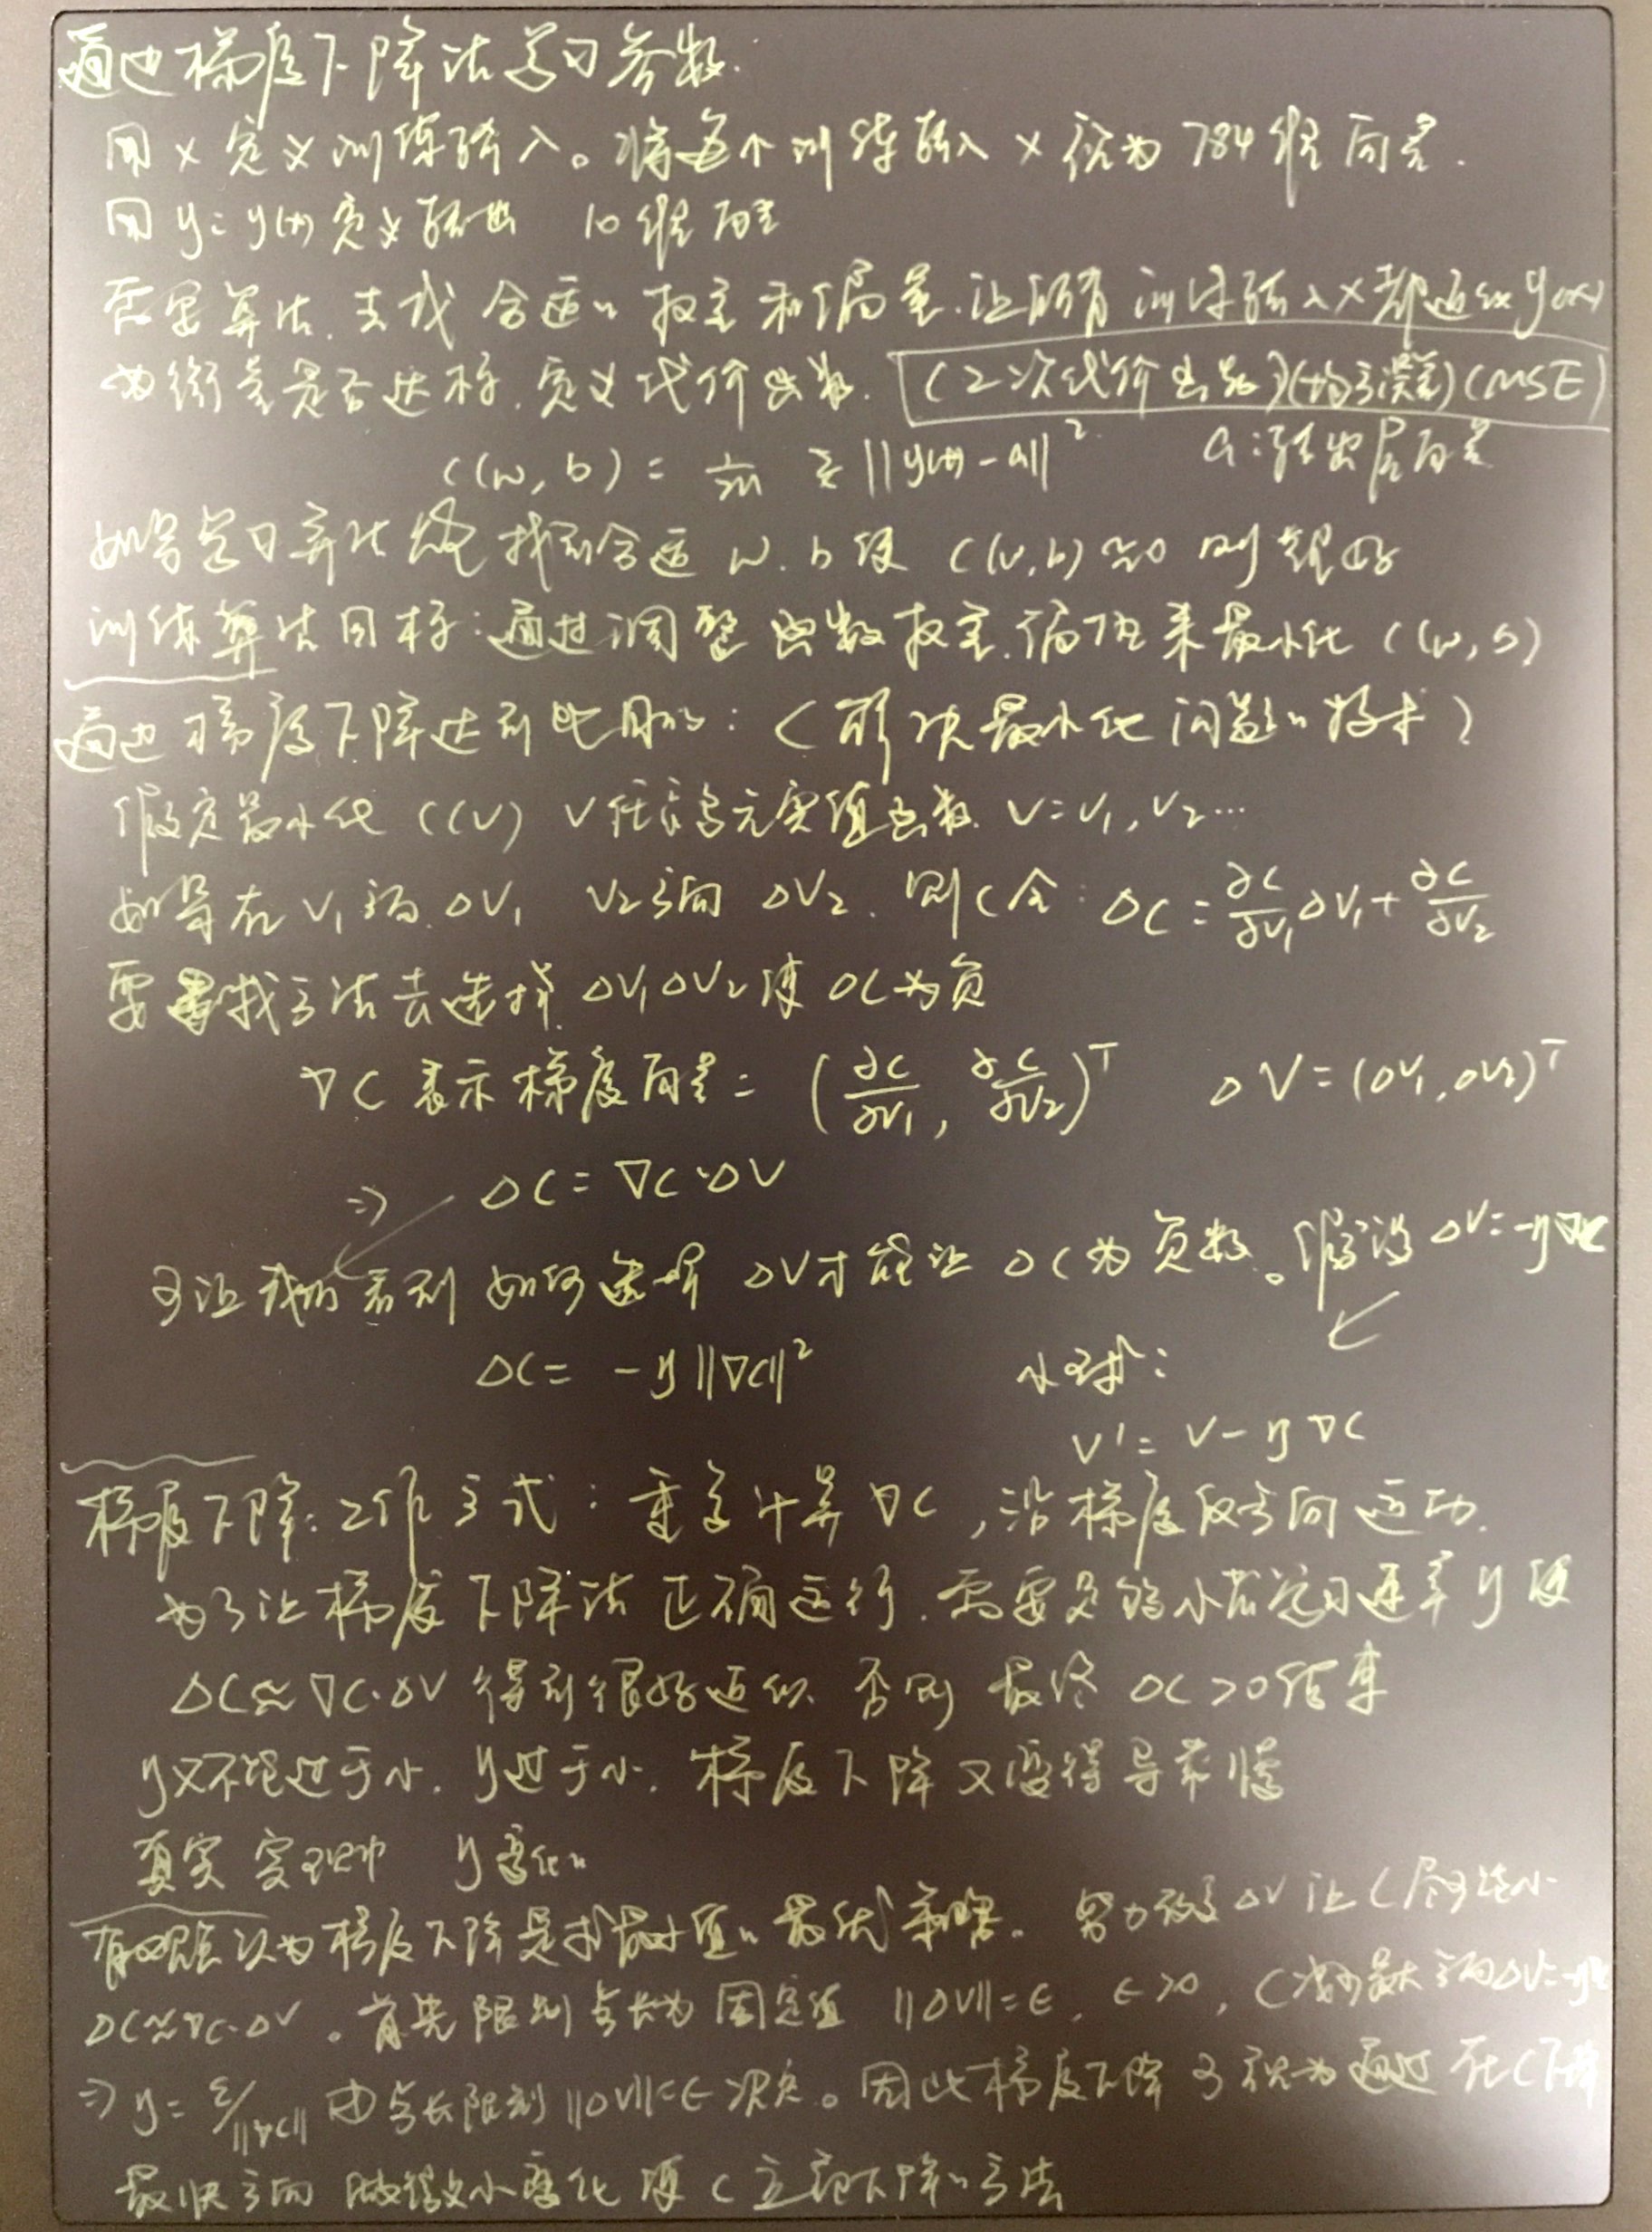 通过梯度下降法学习参数.
用 x 定义训练输入。将每个训练输入 x 视为 784 维向量.
用 y = y(x) 定义输出 10 维向量
需要算法.去找合适的权重和偏差.让所有训练输入 x 都近似 y(x)
为衡量是否达标.定义代价函数. (2次代价函数)(均方误差)(MSE)
C(w, b) = 1/2n Σ ||y(x) - a||² a:输出层向量
如果学习算法能找到合适 w. b 使 C(w,b) ≈0 则很好
训练算法目标:通过调整函数权重.偏置来最小化 C(w, b)
通过梯度下降达到此目的: (解决最小化问题的技术)
假定最小化 C(v) v任意多元实值函数. v = v₁, v₂ ...
如果在 v₁方向. Δv₁ v₂方向 Δv₂. 则C会: ΔC = ∂C/∂v₁ Δv₁ + ∂C/∂v₂
要寻找方法去选择 Δv₁ Δv₂ 使 ΔC 为负
∇C 表示梯度向量 = (∂C/∂v₁, ∂C/∂v₂)ᵀ ΔV = (Δv₁, Δv₂)ᵀ
=> ΔC = ∇C·ΔV
可让我们看到如何选择 ΔV才能让 ΔC 为负数。假设 ΔV = -η∇C
ΔC = -η ||∇C||² 小球:
V' = V - η ∇C
梯度下降:工作方式:重复计算 ∇C ,沿梯度反方向运动.
为了让梯度下降法正确运行.需要足够小的学习速率 η 使
ΔC ≈ ∇C·ΔV 得到很好近似 否则 最终 ΔC >0 结束
η又不能过于小. η过于小. 梯度下降又变得异常慢
真实实现中 η变化的
有观点认为梯度下降是求最小值的最优策略。努力改变 ΔV 让 C 尽可能小
ΔC≈∇C·ΔV 。首先限制步长为固定值 ||ΔV|| = ε, ε >0, C减少最大方向 ΔV = -η∇C
=> η = ε/||∇C|| 由步长限制 ||ΔV|| = ε 决定。因此梯度下降可视为通过在C下降
最快方向做微小变化使 C 立即下降的方法